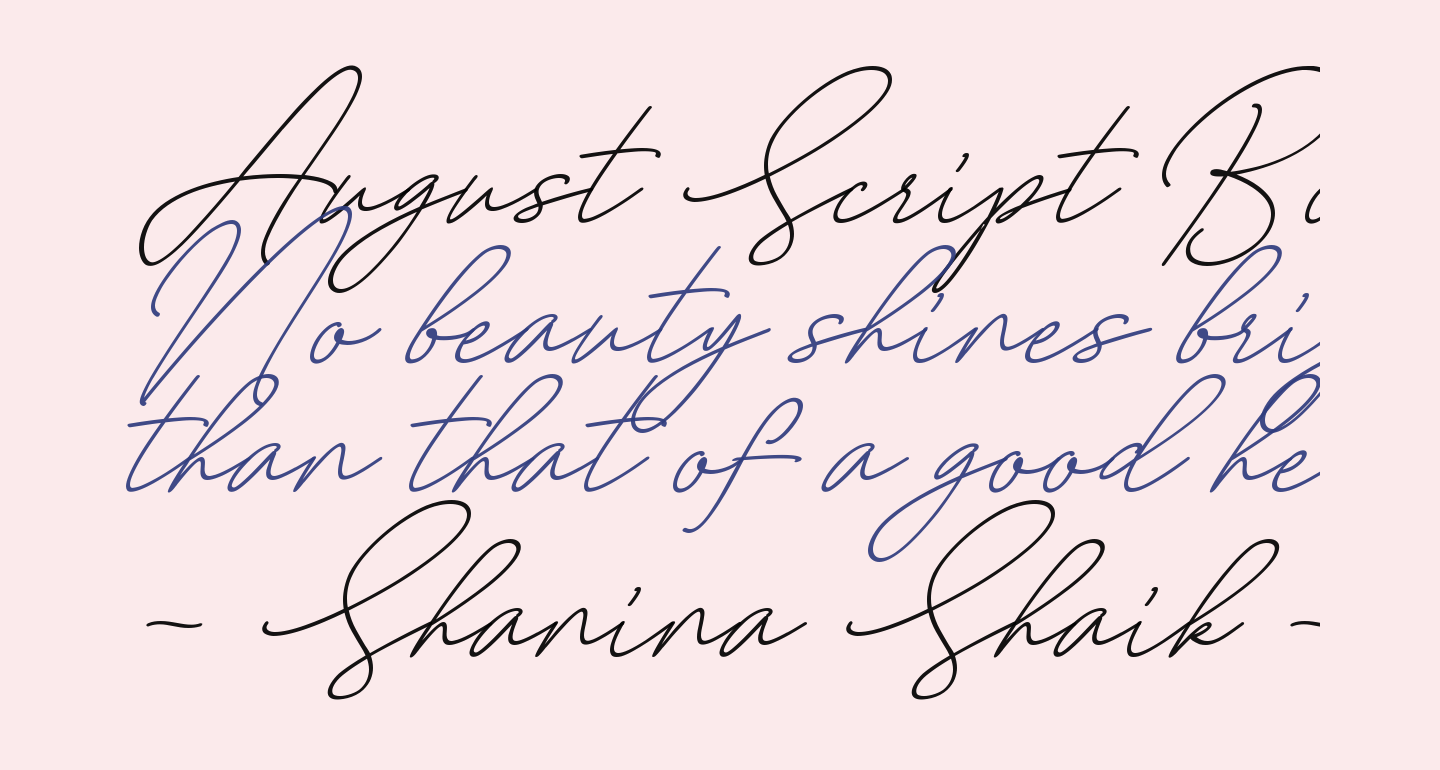 August Script B
No beauty shines bri
than that of a good he
- Shanina Shaik -